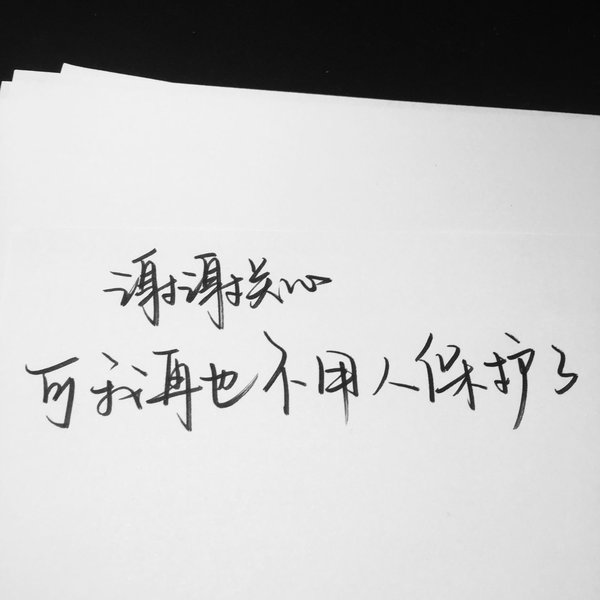 谢谢关心
可我再也不用人保护了